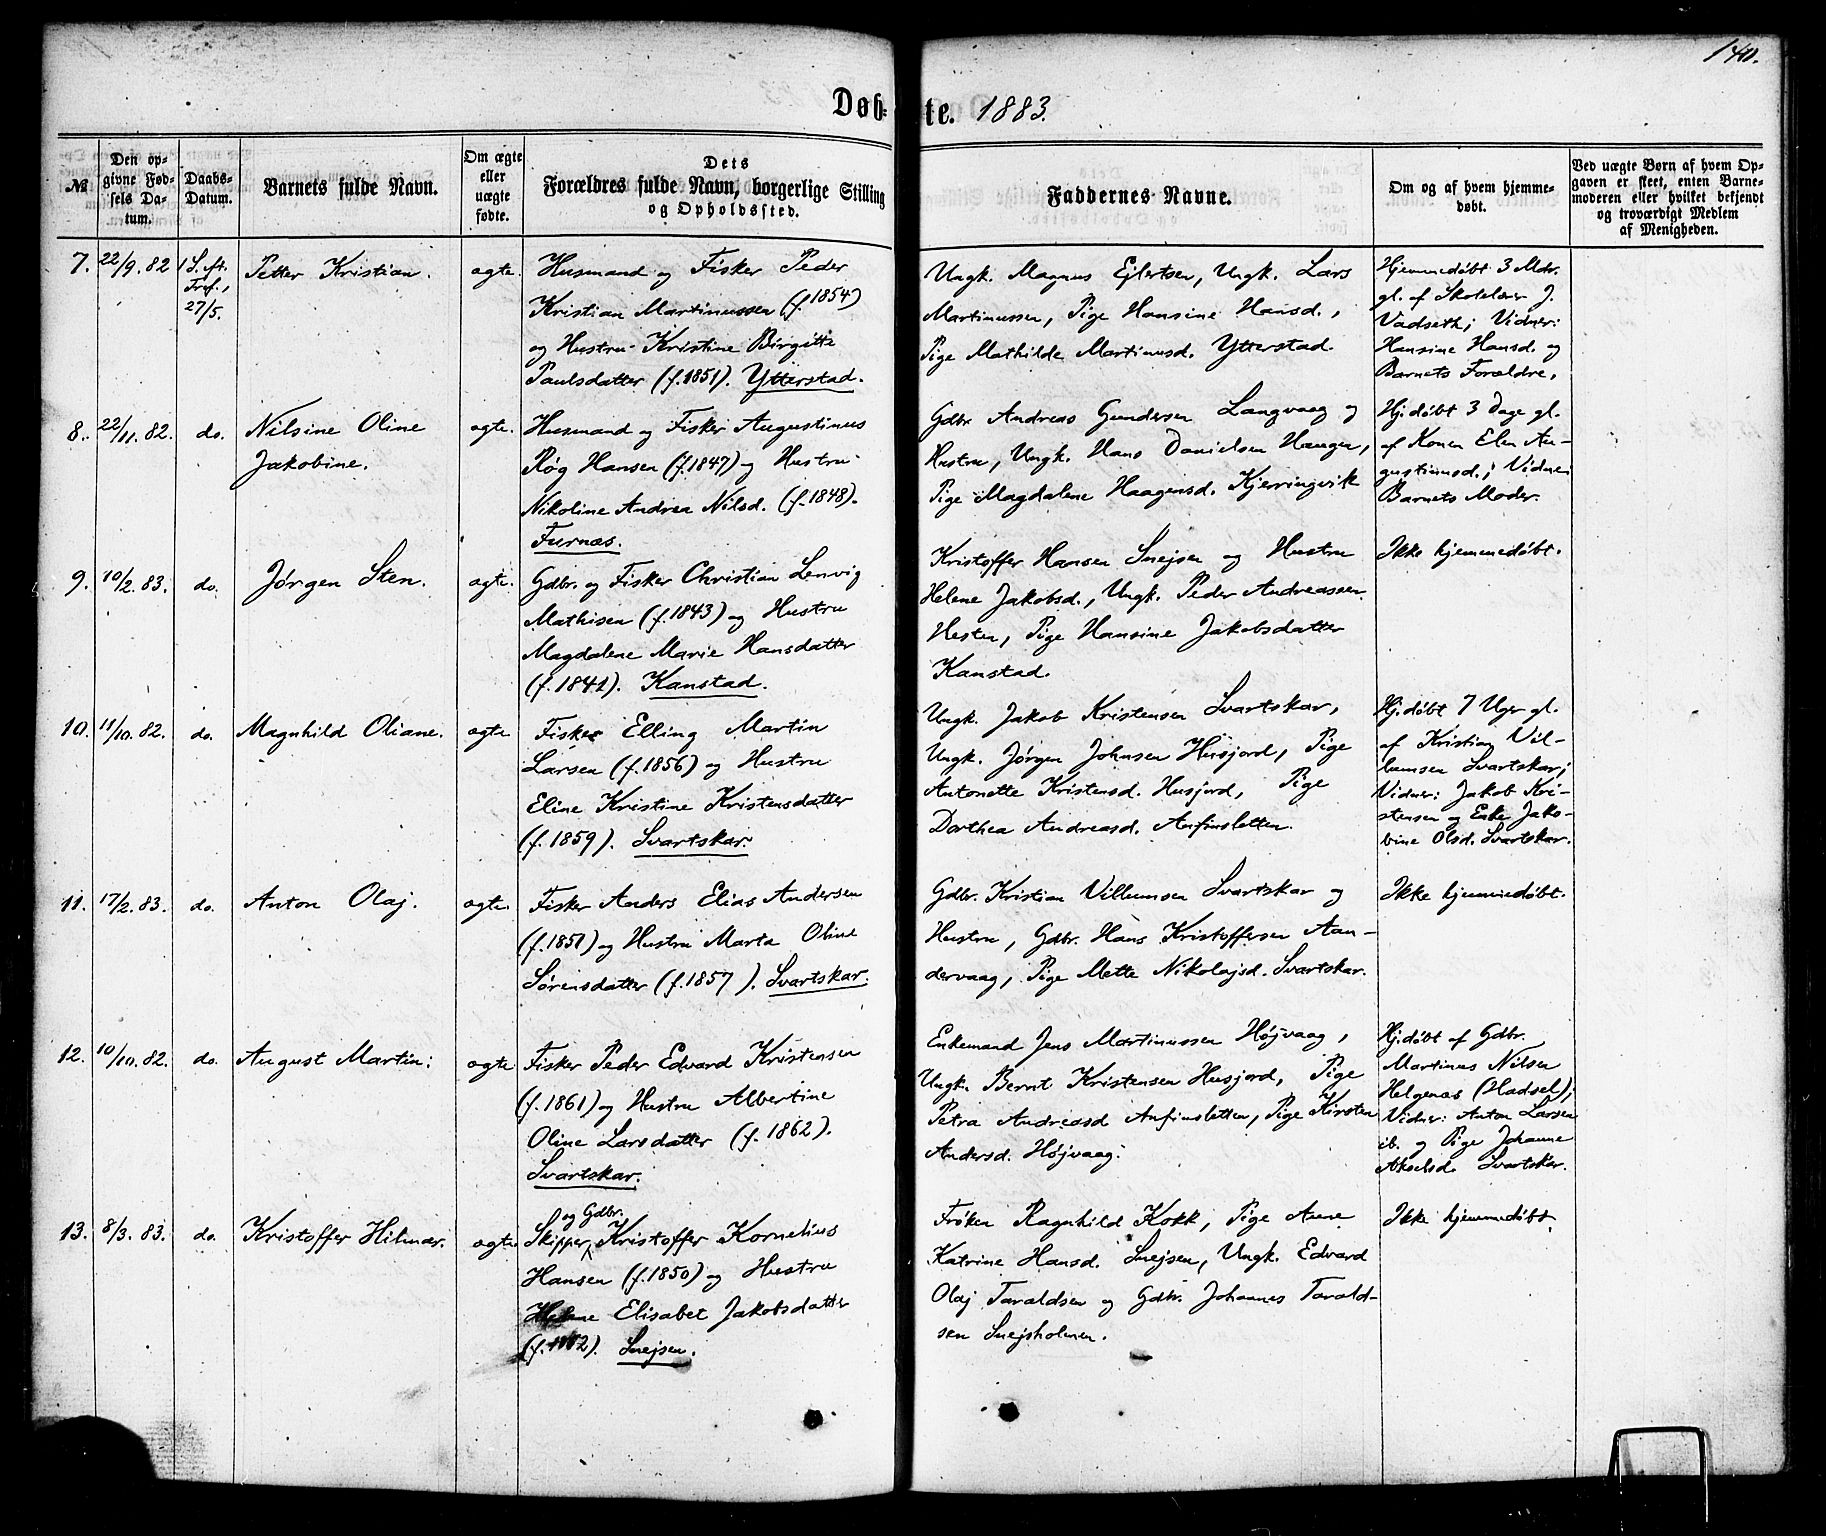 140.
Døb-te. 1883.
№
Den op-
givne Fød-
sels Da-
tum.
Daabs-
Datum.
Barnets fulde Navn.
Om ægte
eller
uægte
fødte.
Dets
Forældres fulde Navn, borgerlige Stilling
og Opholdssted.
Faddernes Navne.
Om og af hvem hjemme-
døbt.
Ved uægte Børn af hvem Op-
gaven er skeet, enten Barne-
moderen eller hvilket bekjendt
og troværdigt Medlem
af Menigheden.
7. 22/9. 82 1 S. eft.
Tref.,
27/5.
Petter Kristian.
ægte.
Husmand og Fisker Peder
Kristian Martinussen (f. 1854)
og Hustru Kristine Birgitte
Paulsdatter (f. 1851). Ytterstad.
Ungk. Magnus Ejlertsen, Ungk. Lars
Martinussen, Pige Hansine Hansd.,
Pige Mathilde Martinusd. Ytterstad.
Hjemmedøbt 3 Mdr.
gl. af Skolelærer J.
Vadseth; Vidner:
Hansine Hansd. og
Barnets Forældre.
8. 22/11. 82. do.
Nilsine Oline
Jakobine.
ægte.
Husmand og Fisker Augustinus
Røg Hansen (f. 1847) og Hustru
Nikoline Andrea Nilsd. (f. 1848).
Furnæs.
Gdbr. Andreas Gundersen Langvaag og
Hustru, Ungk. Hans Danielsen Haugen,
Pige Magdalene Haagensd. Kjerringvik
Hj.døbt 3 Dage gl.
af Konen Elen Au-
gustinusd.; Vidne:
Barnets Moder.
9. 10/2. 83. do.
Jørgen Sten.
ægte.
Gdbr. og Fisker Christian Lenvig
Mathisen (f. 1843) og Hustru
Magdalene Marie Hansdatter
(f. 1841). Kanstad.
Kristoffer Hansen Snejsen og Hustru
Helene Jakobsd., Ungk. Peder Andreassen
Hesten, Pige Hansine Jakobsdatter
Kanstad.
Ikke hjemmedøbt.
10. 11/10. 82. do.
Magnhild Oliane.
ægte.
Fisker Elling Martin
Larsen (f. 1856) og Hustru
Eline Kristine Kristensdatter
(f. 1859). Svartskar.
Ungk. Jakob Kristensen Svartskar,
Ungk. Jørgen Johnsen Husjord, Pige
Antonette Kristensd. Husjord, Pige
Dorthea Andreasd. Anfinsletten.
Hj.døbt 7 Uger gl.
af Kristian Vil-
lumsen Svartskar;
Vidner: Jakob Kri-
stensen og Enke Jako-
bine Olsd. Svartskar.
11. 17/2. 83. do.
Anton Olaj.
ægte.
Fisker Anders Elias Andersen
(f. 1851) og Hustru Marta Oline
Sørensdatter (f. 1857). Svartskar.
Gdbr. Kristian Villumsen Svartskar og
Hustru, Gdbr. Hans Kristoffersen Aan-
dervaag, Pige Mette Nikolajsd. Svartskar.
Ikke hjemmedøbt.
12. 10/10. 82. do.
August Martin.
ægte
Fisker Peder Edvard Kristensen
(f. 1861) og Hustru Albertine
Oline Larsdatter (f. 1862).
Svartskar.
Enkemand Jens Martinussen Højvaag,
Ungk. Bernt Kristensen Husjord, Pige
Petra Andreasd Anfinsletten, Pige Kirsten
Andersd. Højvaag.
Hj.døbt af Gdbr.
Martinus Nilsen
Helgenæs (Hadsel);
Vidner: Anton Larsen
ib. og Pige Johanne
Akselsd. Svartskar.
13. 8/3. 83. do.
Kristoffer Hilmar.
ægte.
og Gdbr.
Skipper Kristoffer Kornelius
Hansen (f. 1850) og Hustru
Helene Elisabet Jakobsdatter
Snejsen.
Frøken Ragnhild Kokk, Pige Anne
Katrine Hansd. Snejsen, Ungk. Edvard
Olaj Taraldsen og Gdbr. Johannes Tarald-
sen Snejsholmen.
Ikke hjemmedøbt.